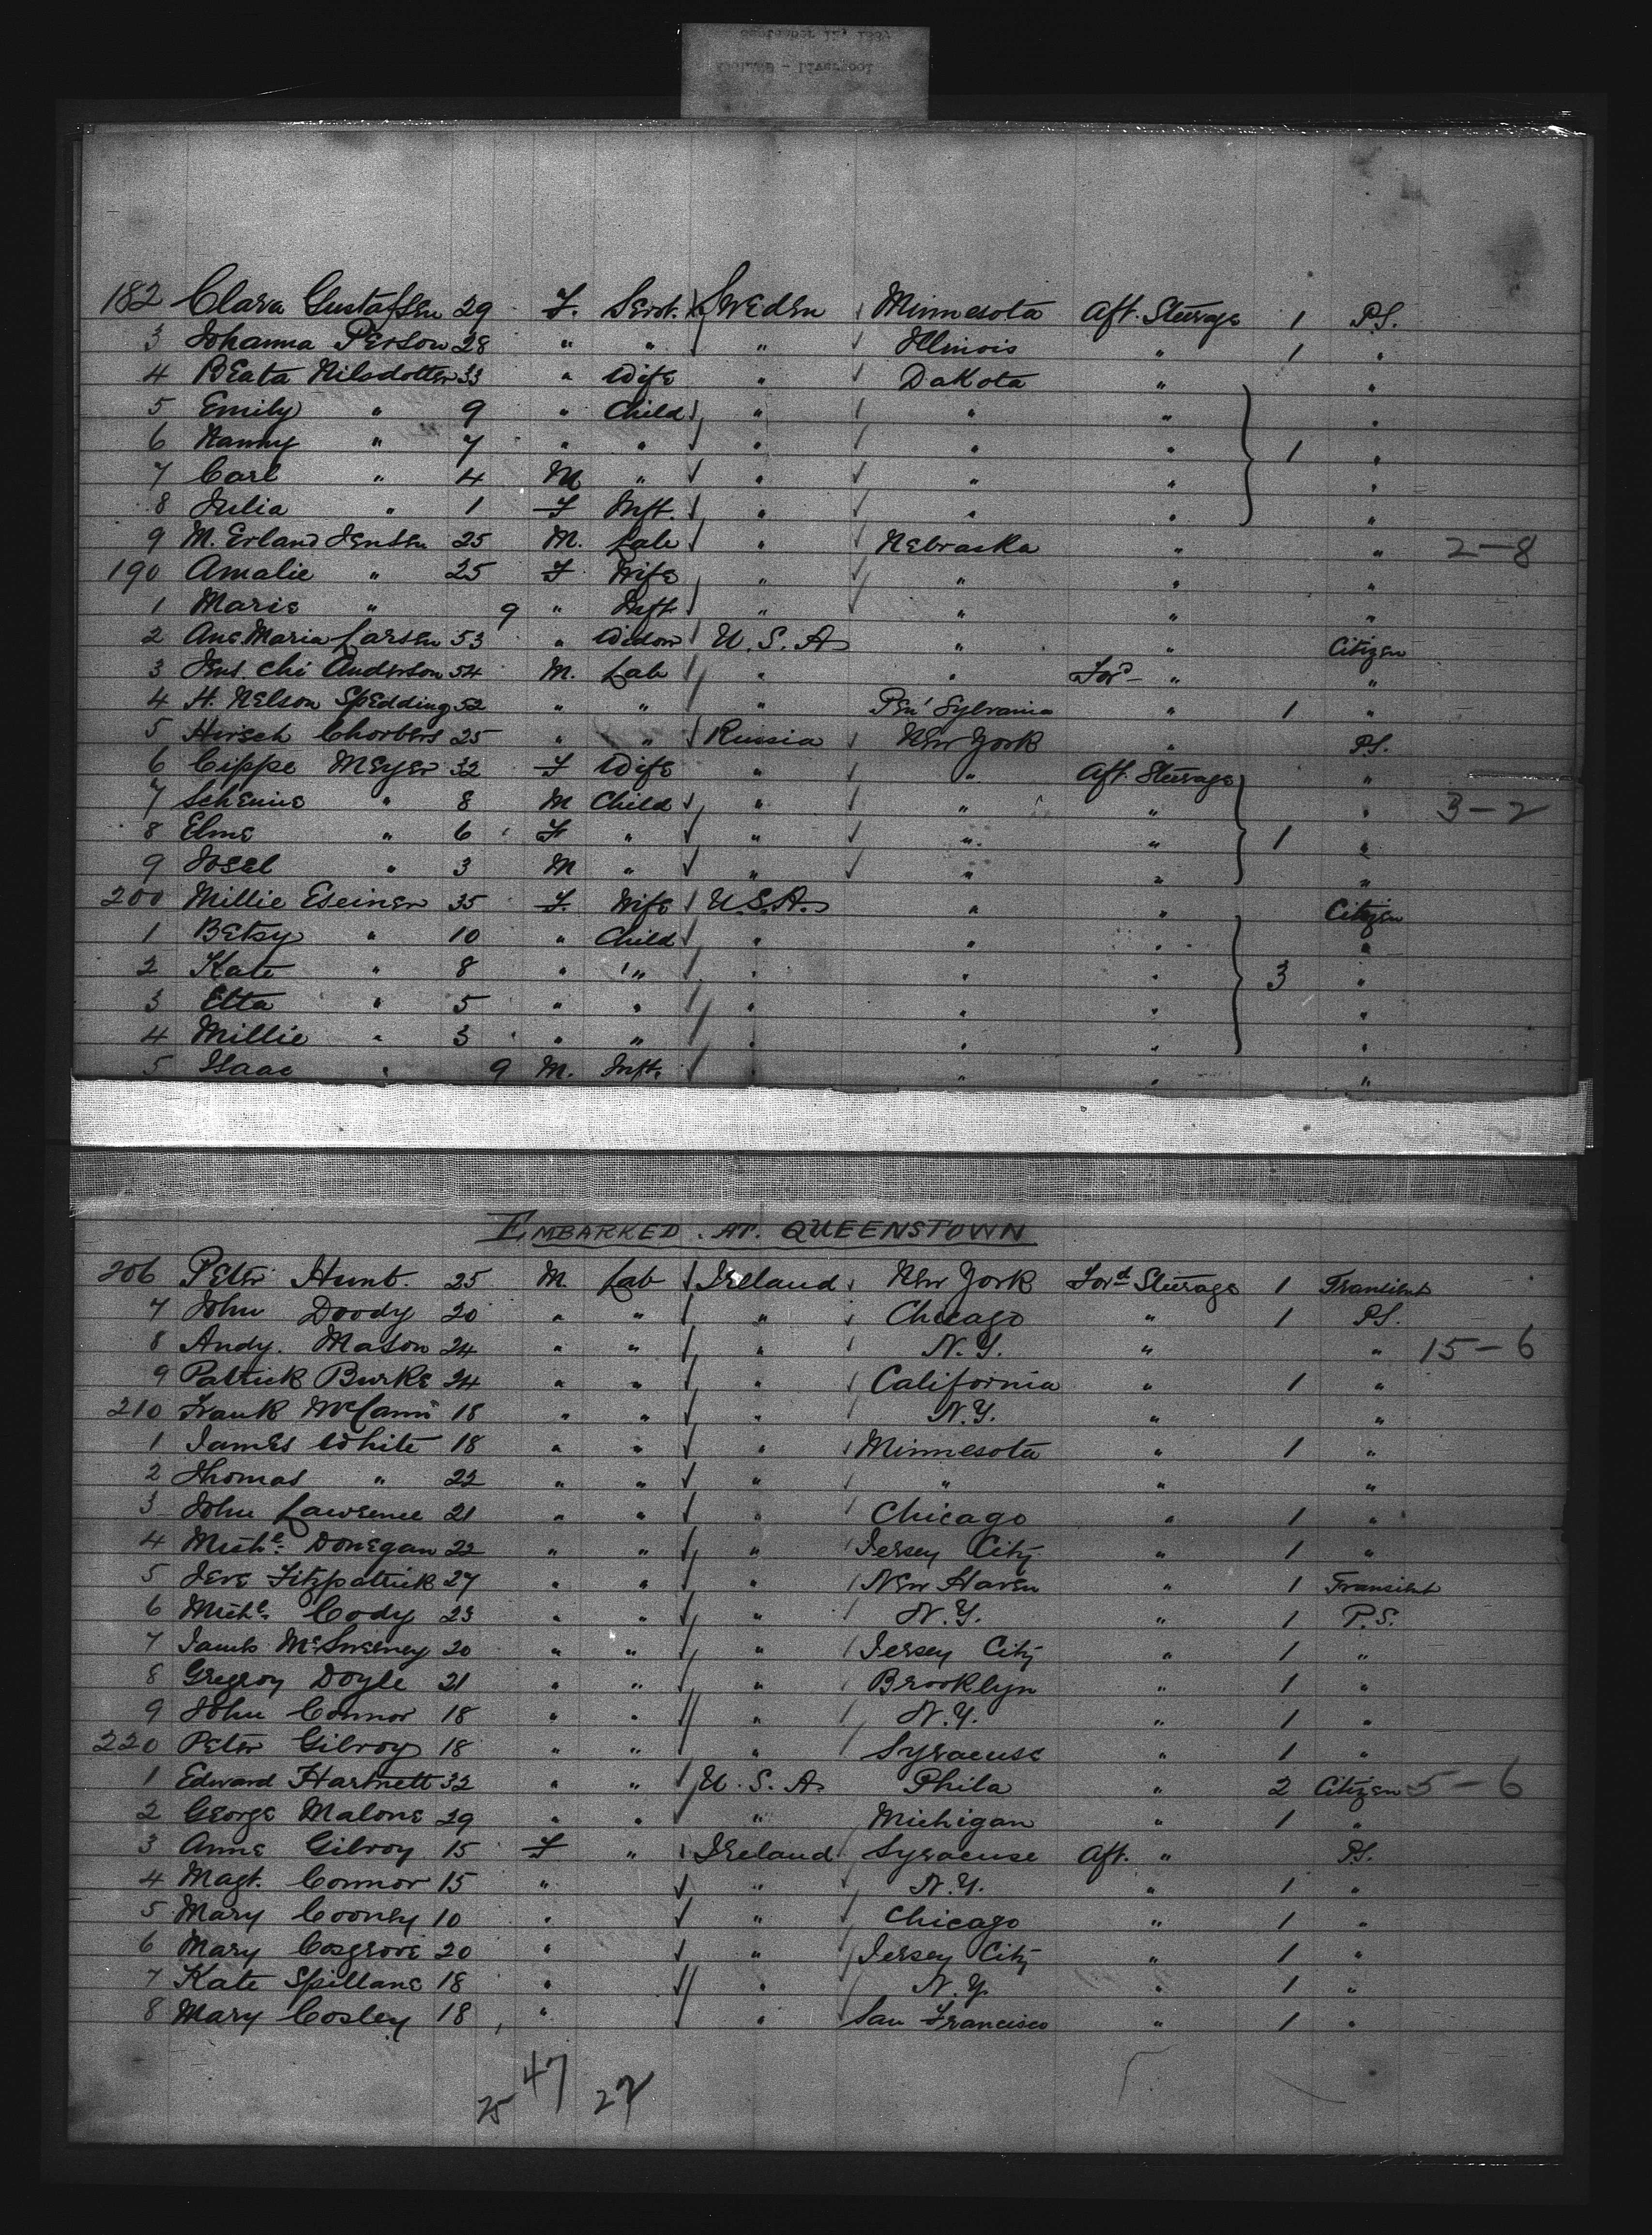 182 Clara Gustafsen 29 F. Servt. Sweden Minnesota Aft. Steerage 1 P.S.
3 Johanna Person 28 " " " Illinois " 1 "
4 Beata Nilsdotter 33 " Wife " Dakota " "
5 Emily " 9 " Child " " " "
6 Nanny " 7 " " " " " 1 "
7 Carl " 4 M " " " " "
8 Julia " 1 F Inft. " " " "
9 M. Erland Jensen 25 M. Lab " Nebraska " " 2-8
190 Amalie " 25 F Wife " " " "
1 Marie " 9 " Inft " " " "
2 Ane Maria Larsen 53 " Widow U.S.A " " Citizen
3 Jens. Chi Anderson 54 M. Lab " " Ford " "
4 H. Nelson Spedding 52 " " " Pen'Sylvania " 1 "
5 Hirsch 25 " " Russia New York " P.S.
6 Cippe Meyer 32 F Wife " " Aft. Steerage "
7 " 8 M Child " " " " 3-2
8 Elme " 6 F " " " " 1 "
9 Josel " 3 M " " " " "
200 Millie Eseiner 35 F. Wife U.S.A. " " Citizen
1 Betsy " 10 " Child " " " "
2 Kate " 8 " " " " " 3 "
3 Etta " 5 " " " " " "
4 Millie " 3 " " " " " "
5 Isaac " 9 M. Inft. " " "
EMBARKED. AT. QUEENSTOWN
206 Peter Hunt. 25 M. Lab Ireland New York Ford Steerage 1 Transient
7 John Doody 20 " " " Chicago " 1 P.S.
8 Andy. Mason 24 " " " N.Y. " " 15-6
9 Patrick Burke 24 " " " California " 1 "
210 Frank McCann 18 " " " N.Y. " "
1 James White 18 " " " Minnesota " 1 "
2 Thomas " 22 " " " " " "
3 John Lawrence 21 " " " Chicago " 1 "
4 Michl. Donegan 22 " " " Jersey City " 1 "
5 Jere Fitzpatrick 27 " " " New Haven " 1 Transient
6 Michl. Cody 23 " " " N.Y. " 1 P.S.
7 James McSweeney 20 " " " Jersey City " 1 "
8 Gregroy Doyle 21 " " " Brooklyn " 1 "
9 John Connor 18 " " " N.Y. " 1 "
220 Peter Gilroy 18 " " " Syracuse " 1 "
1 Edward Hartnett 32 " " U.S.A. Phila " 2 Citizen 5-6
2 George Malone 29 " " " Michigan " 1 "
3 Anne Gilroy 15 F " Ireland Syracuse Aft. " P.S.
4 Magt. Connor 15 " " N.Y. " 1 "
5 Mary Cooney 10 " " Chicago " 1 "
6 Mary Cosgrove 20 " " Jersey City " 1 "
7 Kate Spillane 18 " " N.Y. " 1 "
8 Mary Cosley 18 " " San Francisco " 1 "
25 47 22